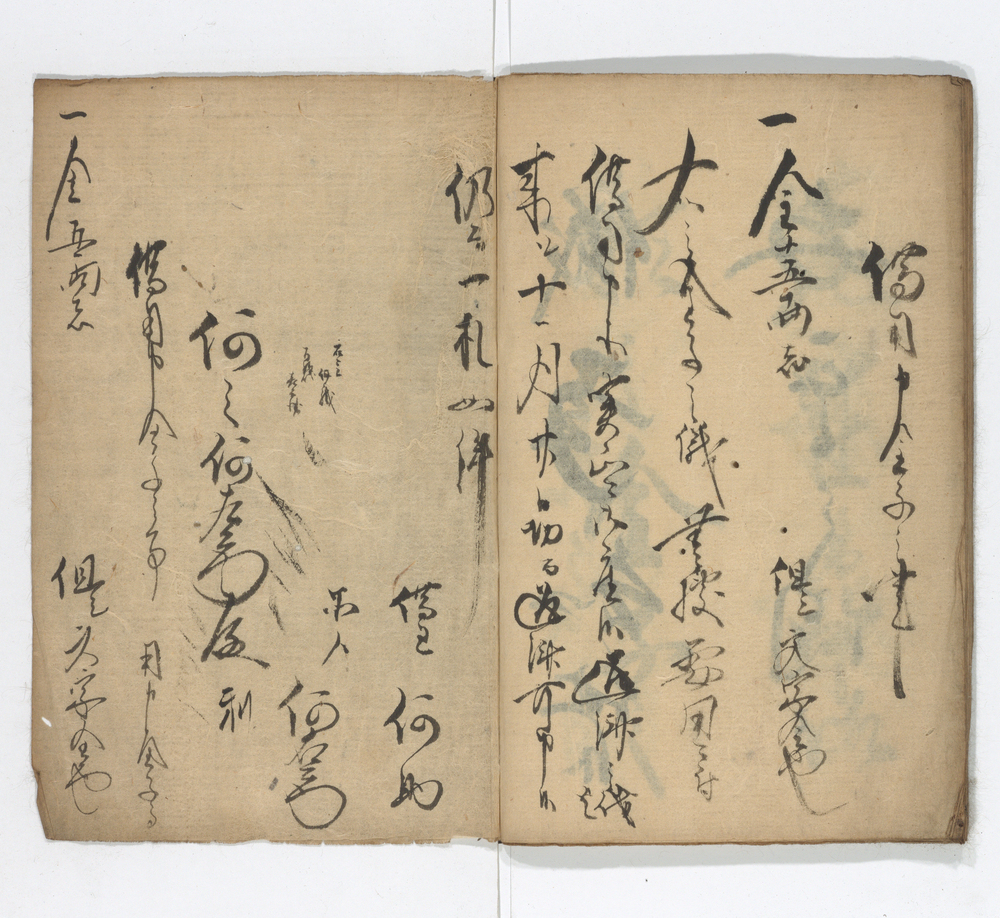 借用申金子之事
一金十五両者 但文字金也
右之金子之儀無拠要用ニ付
借用申所実正ニ御座候返済之儀者
来ル十一月廿日切而返済可申候
仍而一札如件
借主 何助
承人 何右衛門
何之何左衛門殿
一金五両者 但文字金也
借用申金子之事
用申金子